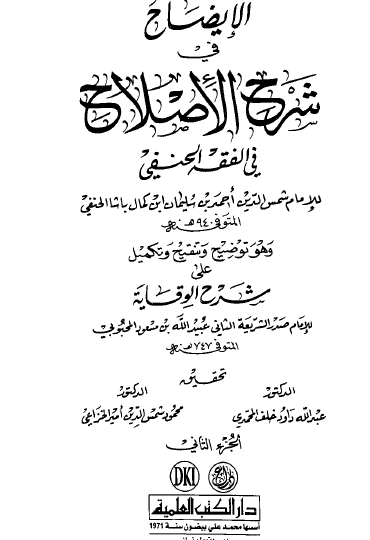 الإيضاح
في
شرح الإصلاح
في الفقه الحنفي
للإمام شمس الدين أحمد بن سليمان ابن كمال باشا الحنفي
المتوفى ٩٤٠ هـنة
وهو توضيح وتنقيح وتكميل
على
شرح الوقاية
للإمام صدر الشريعة الثاني عبيد الله بن مسعود المحبوبي
المتوفى ٧٤٧ هـنة
تحقيق
الدكتور
الدكتور
عبد الله داود خلف المحمدي
محمود شمس الدين أمير الخزاعي
الجزء الثاني
DKI
دار الكتب العلمية
أسسها محمد علي بيضون سنة 1971